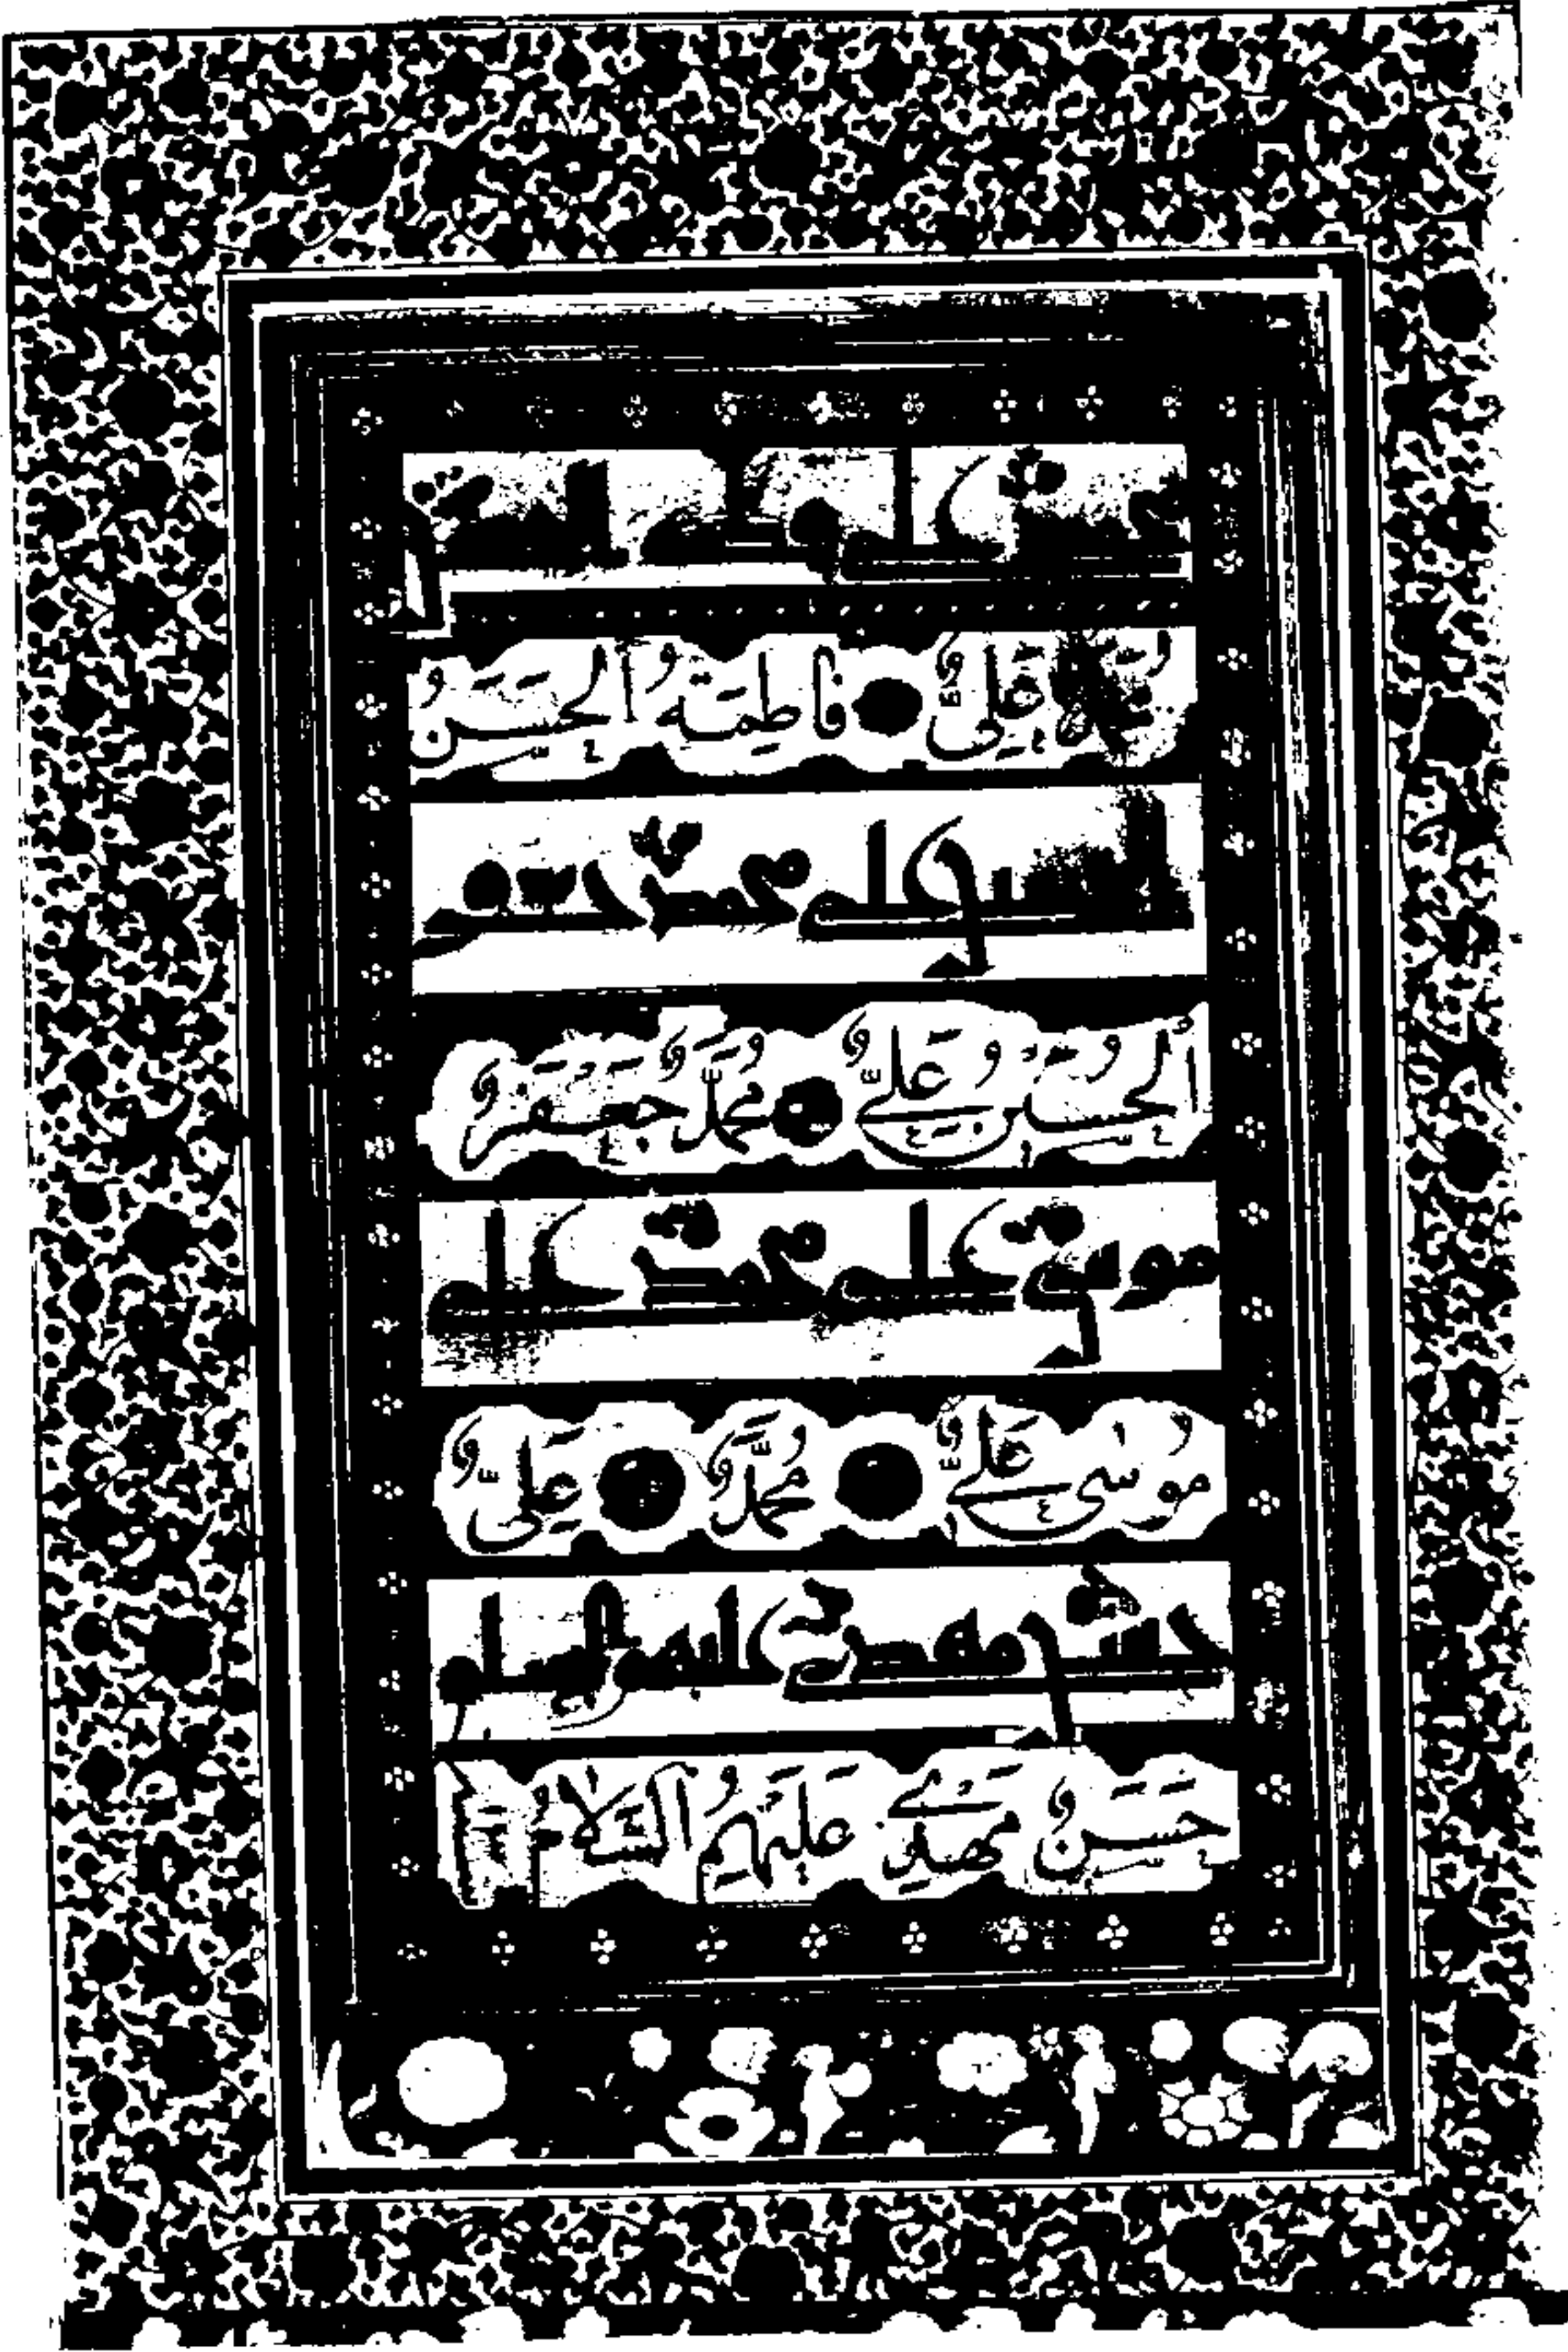 محمد علی فاطمة الحسن
مُحَمَّدٌ عَلِيٌّ فَاطِمَةُ الْحَسَنُ
الحسین علی محمد جعفر
اَلْحُسَيْنُ عَلِيٌّ مُحَمَّدٌ جَعْفَرٌ
موسی علی محمد علی
مُوسٰى عَلِيٌّ مُحَمَّدٌ عَلِيٌّ
حسن مهدی علیهم السلام
حَسَنٌ مَهْدِي عَلَيْهِمُ السَّلَامُ